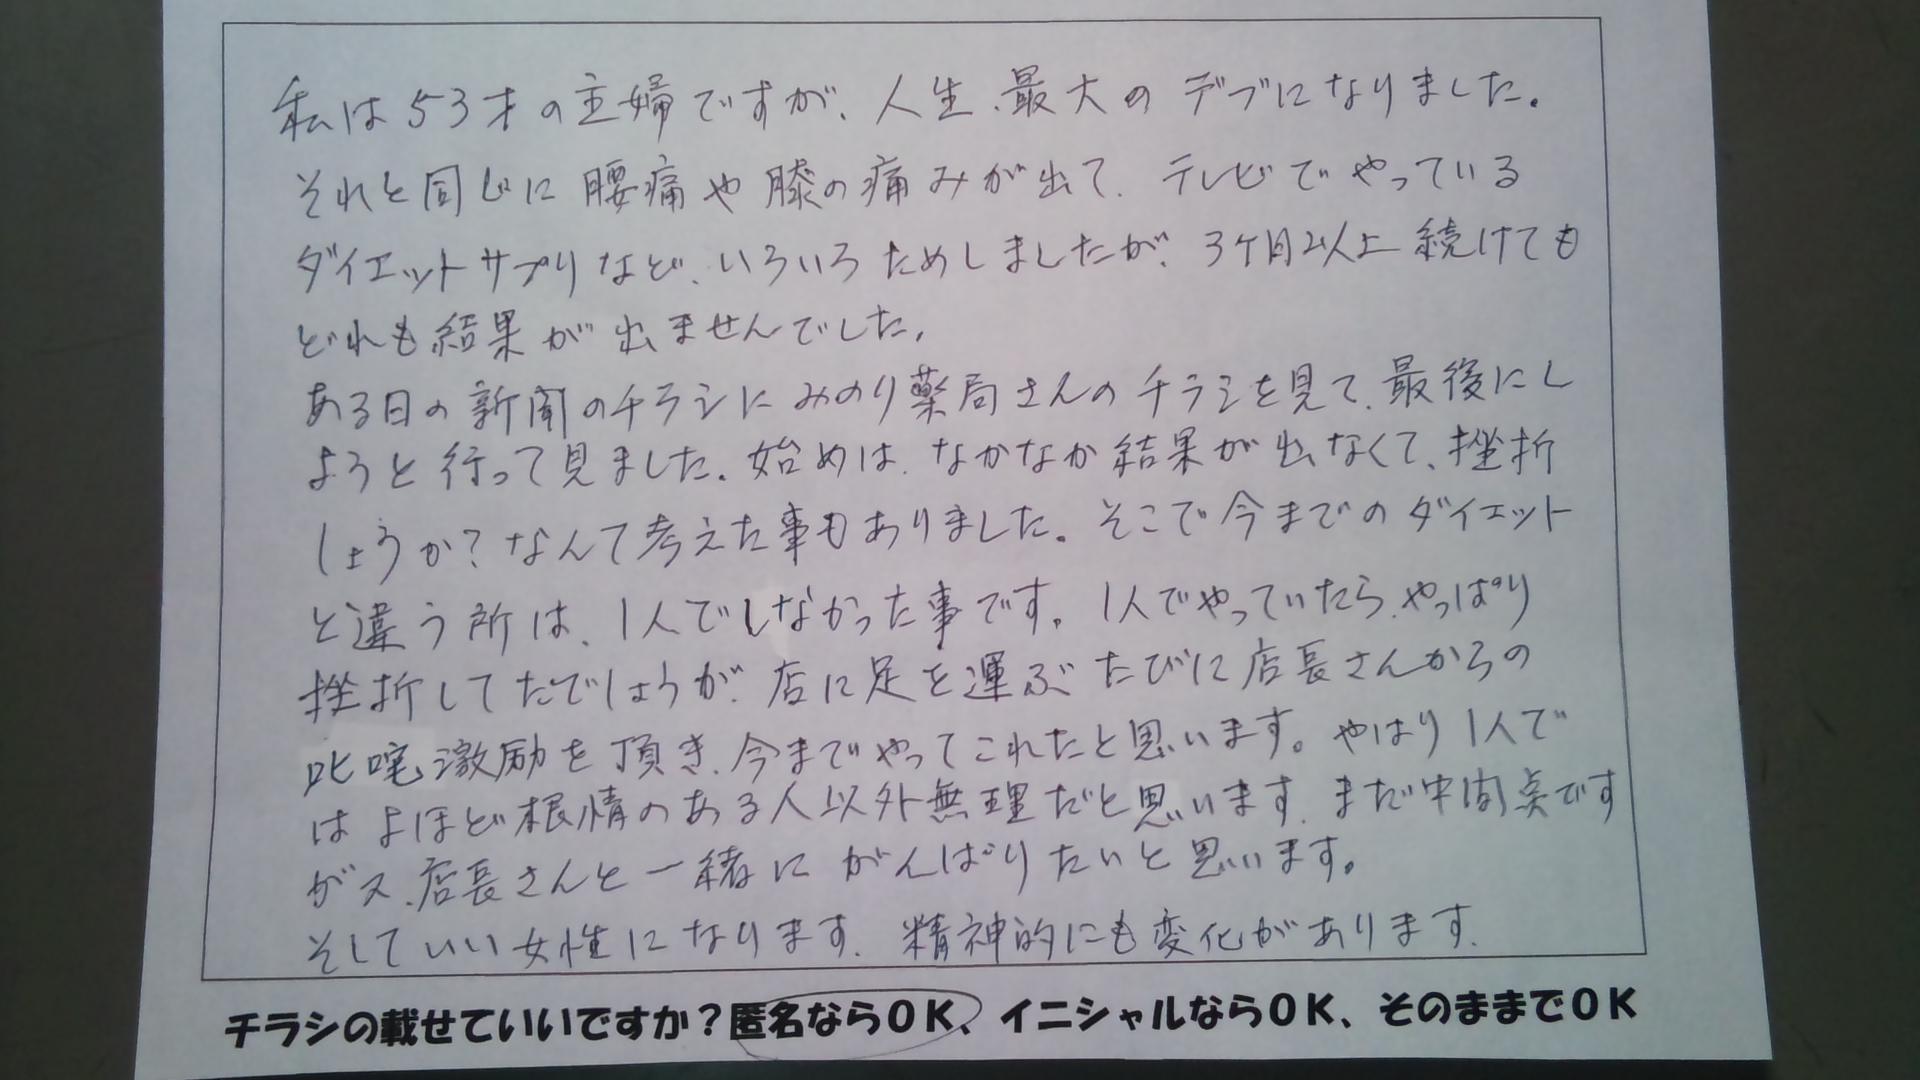 私は53才の主婦ですが、人生、最大のデブになりました。
それと同じに腰痛や膝の痛みが出て、テレビでやっている
ダイエットサプリなど、いろいろためしましたが、3ケ月以上続けても
どれも結果が出ませんでした。
ある日の新聞のチラシにみのり薬局さんのチラシを見て、最後にし
ようと行って見ました。始めは、なかなか結果が出なくて、挫折
しょうか？なんて考えた事もありました。そこで今までのダイエット
と違う所は、1人でしなかった事です。1人でやっていたら、やっぱり
挫折してたでしょうが、店に足を運ぶたびに店長さんからの
叱咤激励を頂き、今までやってこれたと思います。やはり1人で
はよほど根情のある人以外無理だと思います。まだ中間点です
がヌ、店長さんと一緒にがんばりたいと思います。
そしていい女性になります。精神的にも変化があります。
チラシの載せていいですか？匿名ならOK、イニシャルならOK、そのままでOK